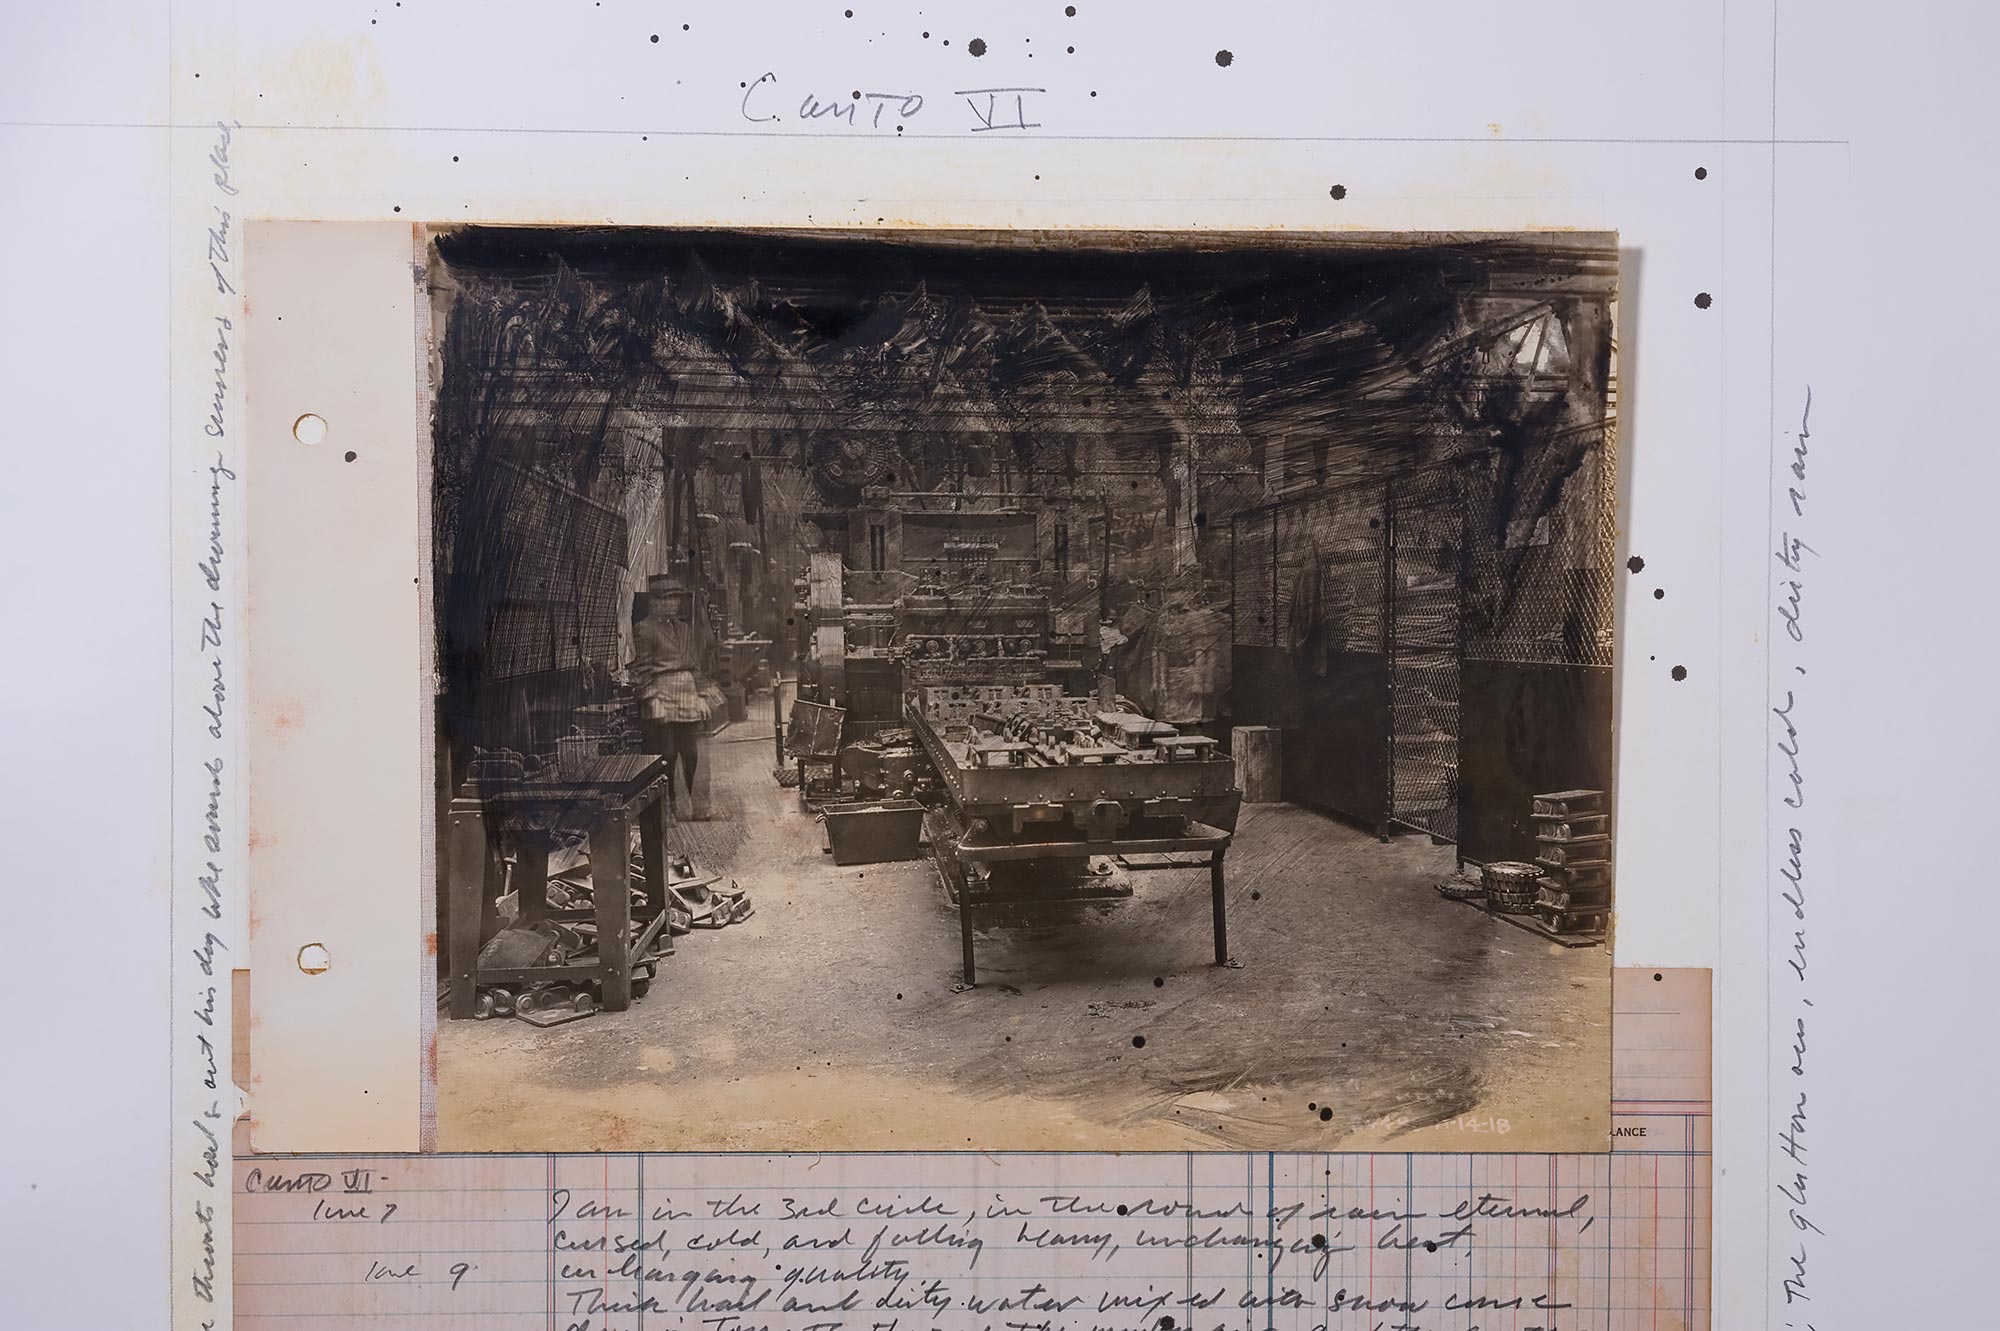 Canto VI
throats howl & out his dog like sounds above the drowning sinners of this place,
-14-18
LANCE
Canto VI-
line 7
I am in the 3rd circle, in the round of rain eternal,
cursed, cold, and falling heavy, unchanging beat,
line 9.
unchanging quality.
Thick hail and dirty water mixed with snow come
The gluttonous, endless cold, dirty rain